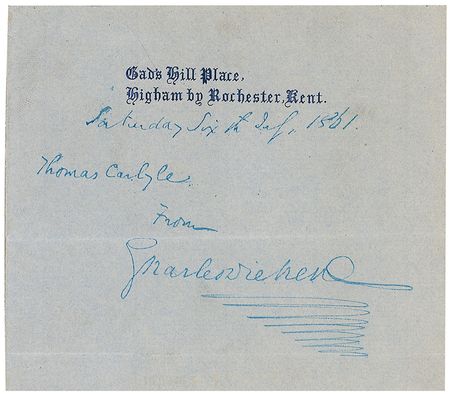 Gad's Hill Place,
Higham by Rochester, Kent.
Saturday Sixth July, 1861.
Thomas Carlyle.
From
Charles Dickens